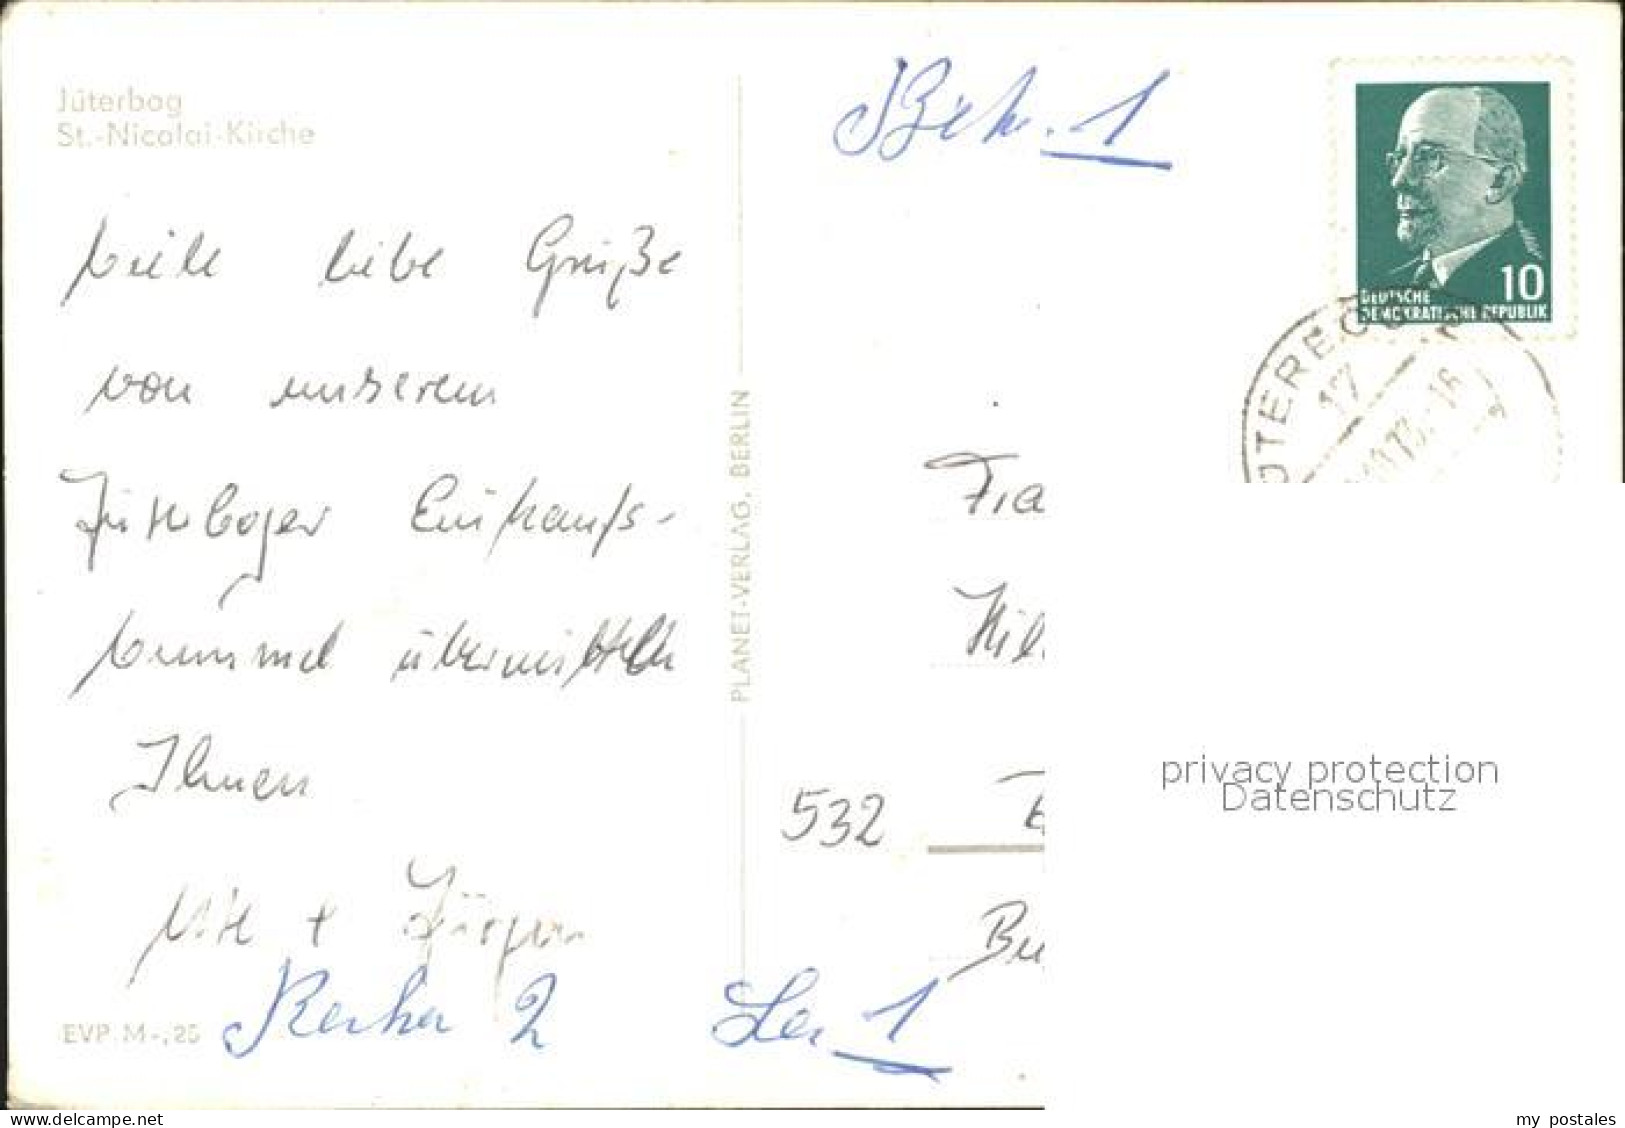 Jüterbog
St.-Nicolai-Kirche
viele liebe Grüße
von unserem
Jüterboger Einkaufs-
bummel übermitteln
Ihnen
+ Jürgen
EVP M -,25
2
PLANET-VERLAG, BERLIN
1
10
DEUTSCHE
DEMOKRATISCHE REPUBLIK
17
16
Fra
Hil
532
Bu
1
privacy protection
Datenschutz
delcampe.net
my_postales